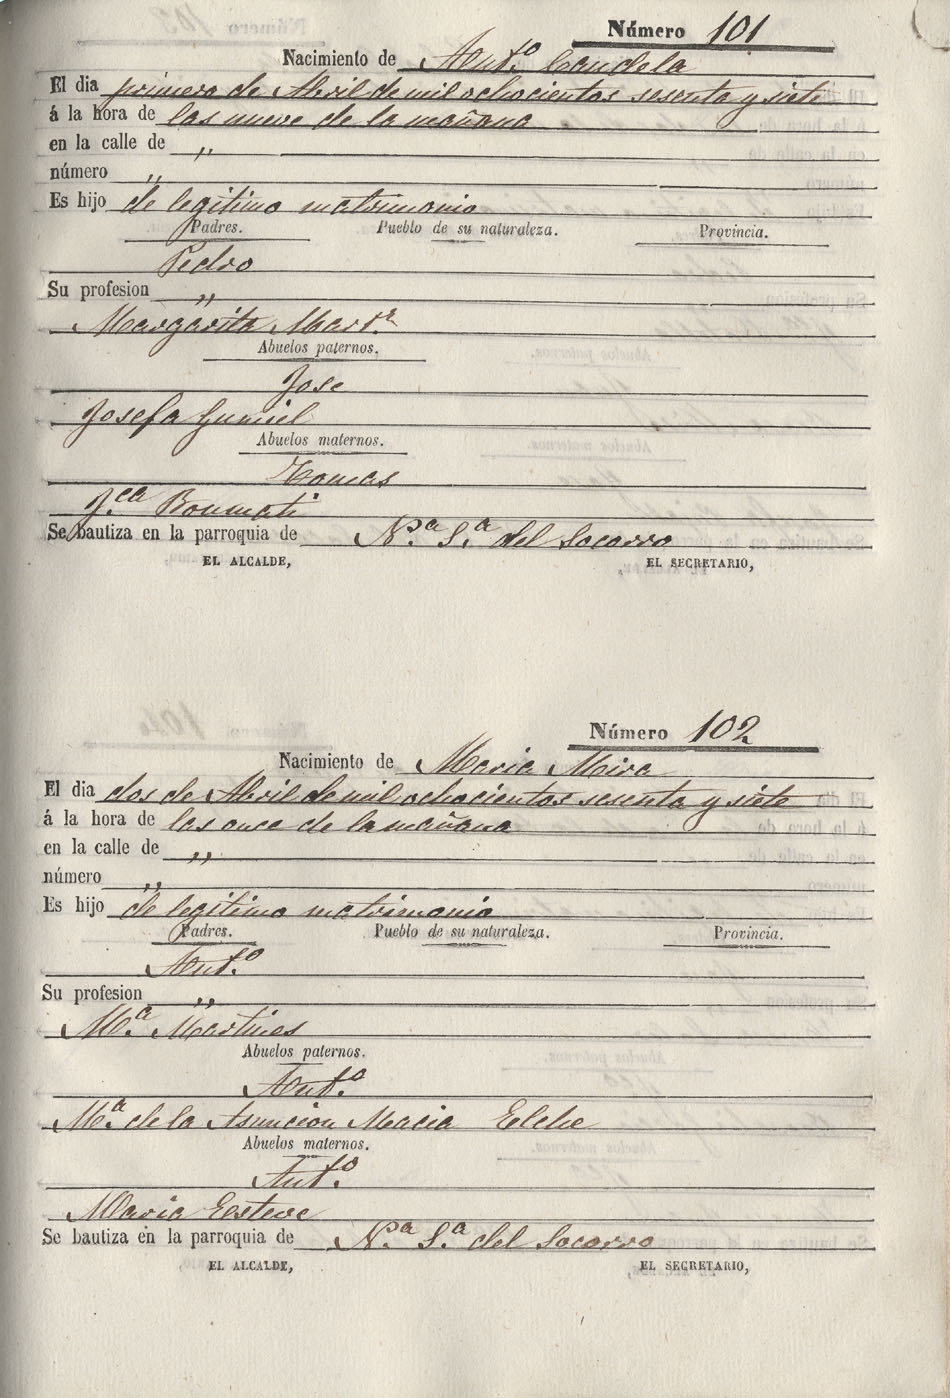 Número 101
Nacimiento de Ant.º Candela
El dia primero de Abril de mil ochocientos sesenta y siete
á la hora de las nueve de la mañana
en la calle de „
número „
Es hijo de legitimo matrimonio
Padres. Pueblo de su naturaleza. Provincia.
Pedro
Su profesion „
Margarita Mart.z
Abuelos paternos.
Jose
Josefa Gumiel
Abuelos maternos.
Tomas
F.ca Boumati
Se bautiza en la parroquia de N.a S.a del Socorro
EL ALCALDE, EL SECRETARIO,
Número 102
Nacimiento de Maria Mira
El dia dos de Abril de mil ochocientos sesenta y siete
á la hora de las once de la mañana
en la calle de „
número „
Es hijo de legitimo matrimonio
Padres. Pueblo de su naturaleza. Provincia.
Ant.º
Su profesion „
M.a Martines
Abuelos paternos.
Ant.º
M.a de la Asuncion Macia Elche
Abuelos maternos.
Ant.º
Maria Esteve
Se bautiza en la parroquia de N.a S.a del Socorro
EL ALCALDE, EL SECRETARIO,